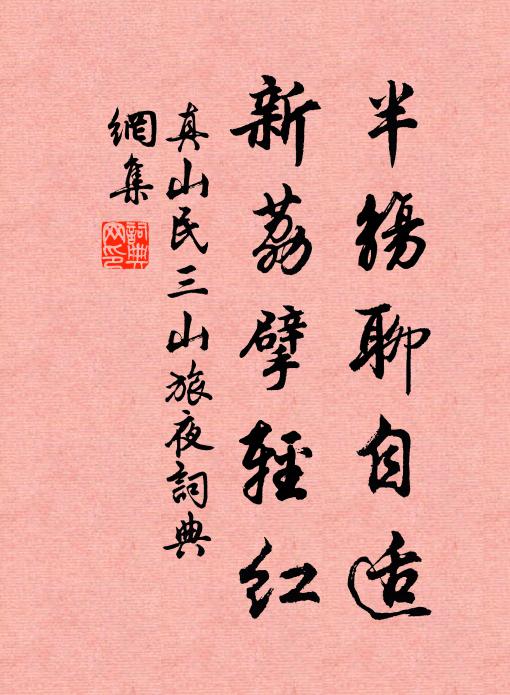 半觴聊自适
新荔擘輕红
真山民三山旅夜詞典
網集
詞典
网印